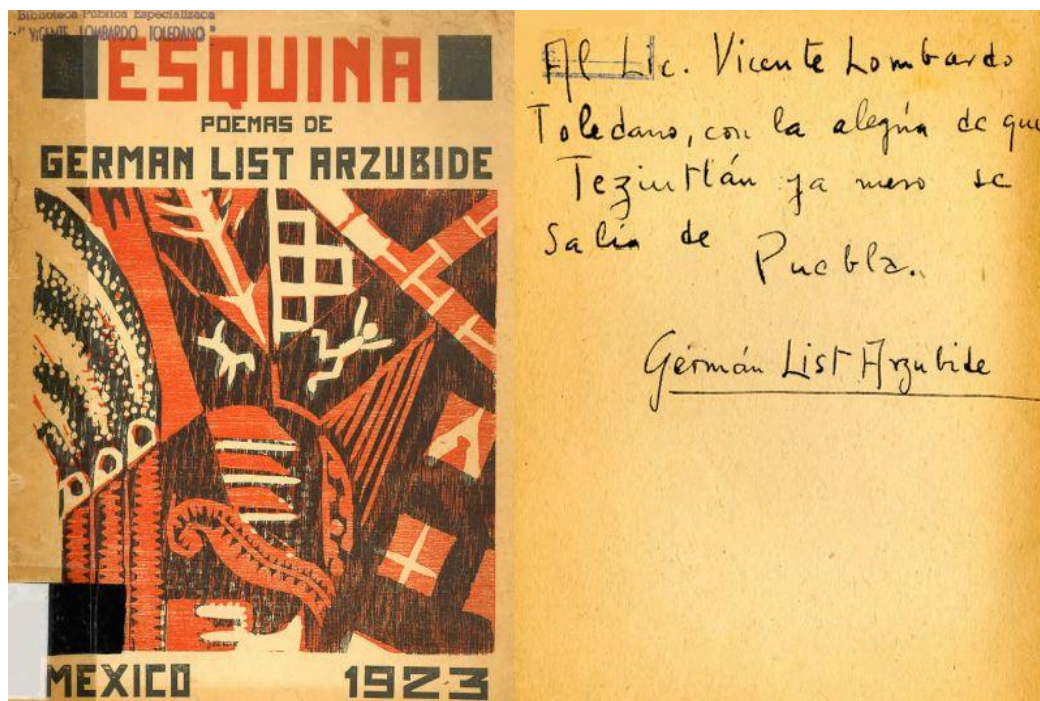 Biblioteca Pública Especializada
"VICENTE LOMBARDO TOLEDANO"
ESQUINA
POEMAS DE
GERMAN LIST ARZUBIDE
MEXICO 1923
Al Lic. Vicente Lombardo
Toledano, con la alegría de que
Teziutlán ya mero se
salía de
Puebla.
Germán List Arzubide